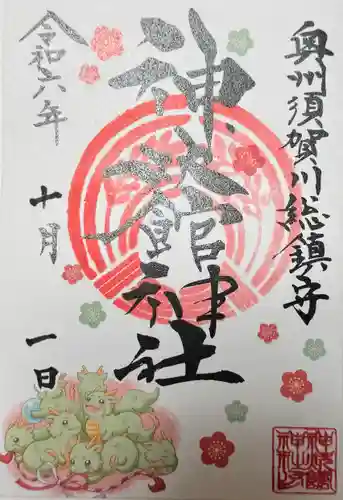 奥州須賀川総鎮守
神炊館神社
令和六年
十月
一日